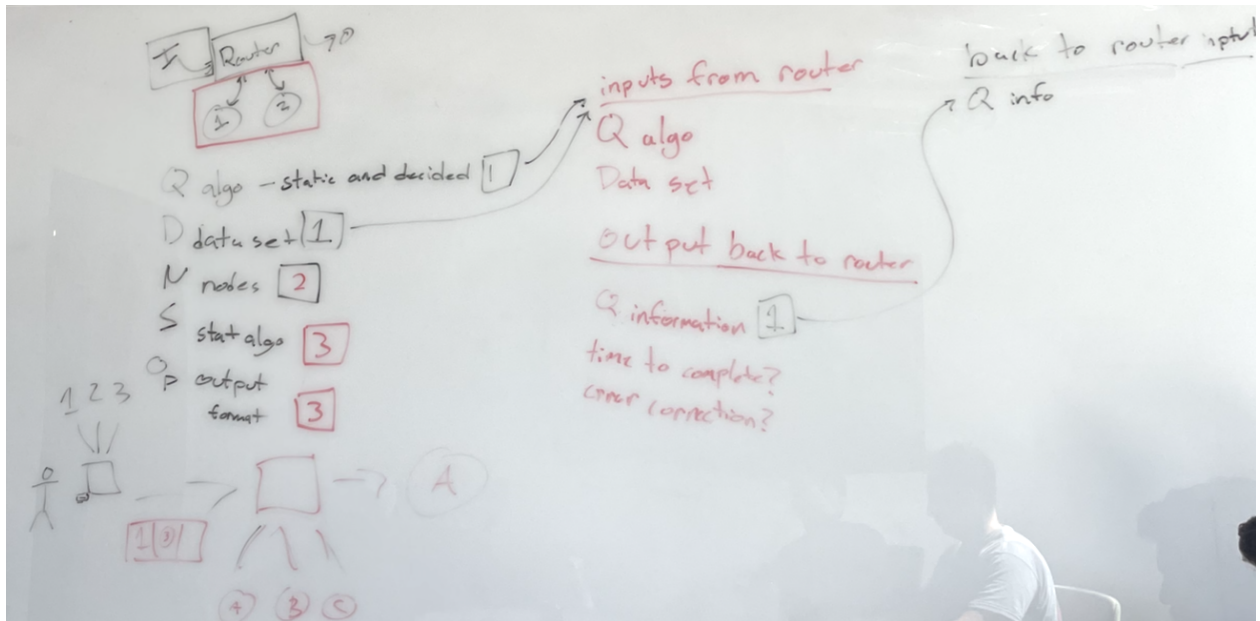 Router
1 2
Q algo - static and decided 1
D data set 1
N nodes 2
S stat algo 3
OP output
format 3
1 2 3
A
inputs from router
Q algo
Data set
output back to router
Q information 1
time to complete?
error correction?
back to router
Q info